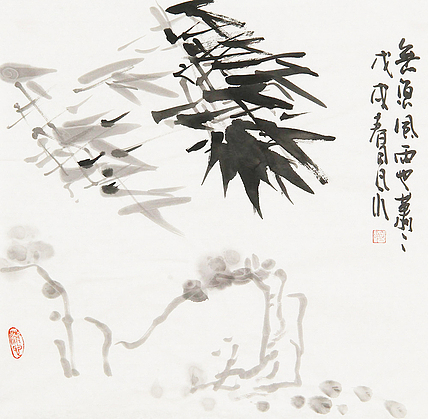 無須风雨也蕭〻
戊戌春日